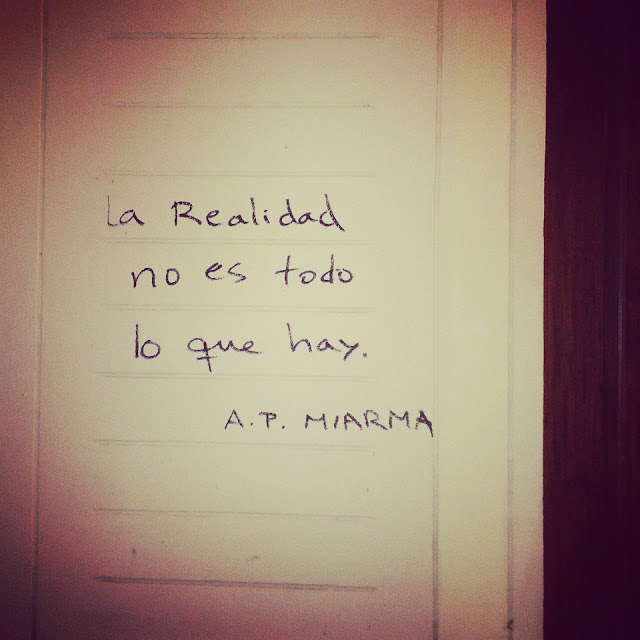 La Realidad
no es todo
lo que hay.
A.P. MIARMA